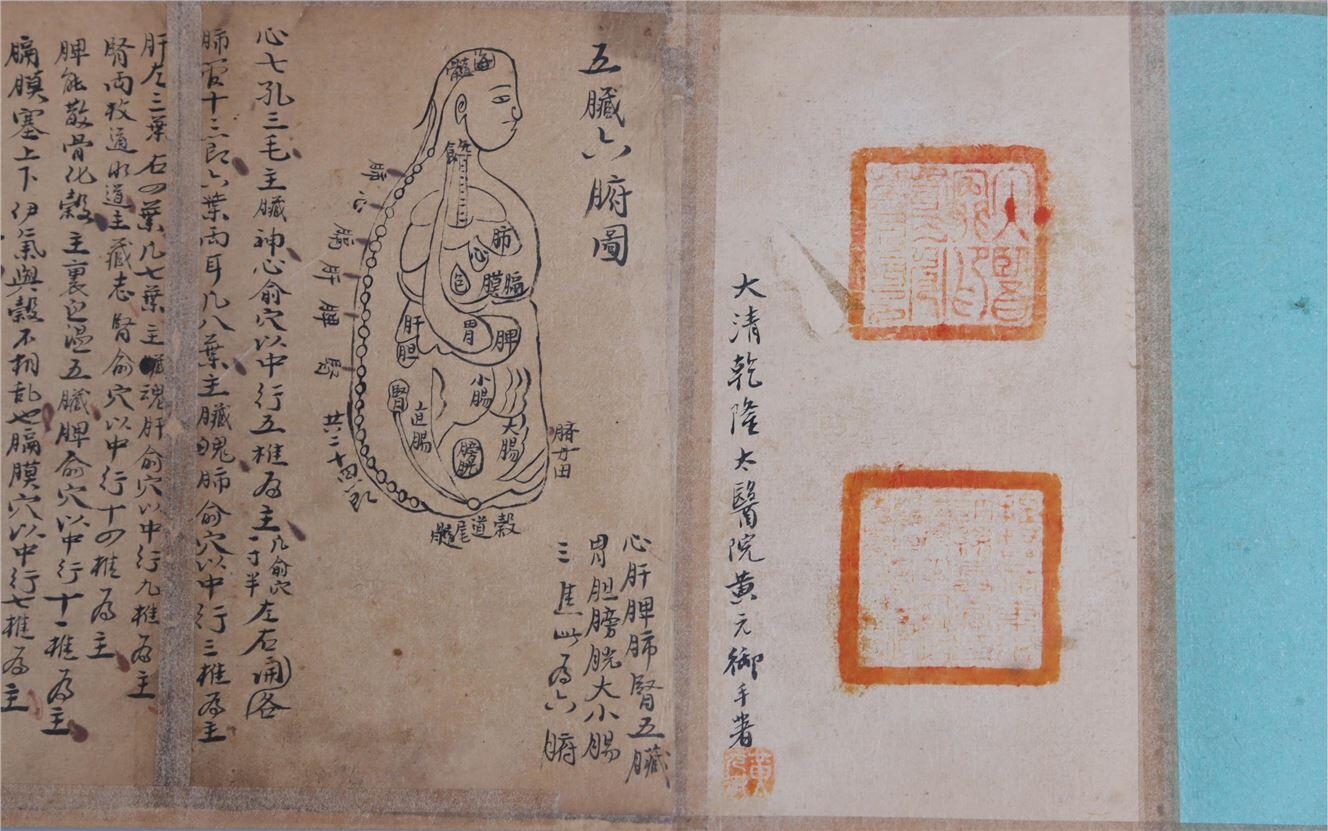 大清乾隆太醫院黃元御手著
五臟六腑圖
心肝脾肺腎五臟
胃胆膀胱大小腸
三焦此為六腑
髓海
肺
心
包
膈膜
肝
胆
胃
脾
腎
小腸
直腸
大腸
膀胱
臍丹田
穀道尾髓
肺心膈肝脾腎共二十四
心七孔三毛主臟神心俞穴以中行五椎為主凡俞穴寸半左右開各
肺管十二節六葉兩耳凡八葉主臟魄肺俞穴以中行三椎為主
肝左三葉右四葉凡七葉主臟魂肝俞穴以中行九椎為主
腎兩枚道水道主藏志腎俞穴以中行十四椎為主
脾能散骨化穀主裹血溫五臟脾俞穴以中行十一椎為主
膈膜塞上下伊氣與穀不相乱也膈膜穴以中行七椎為主